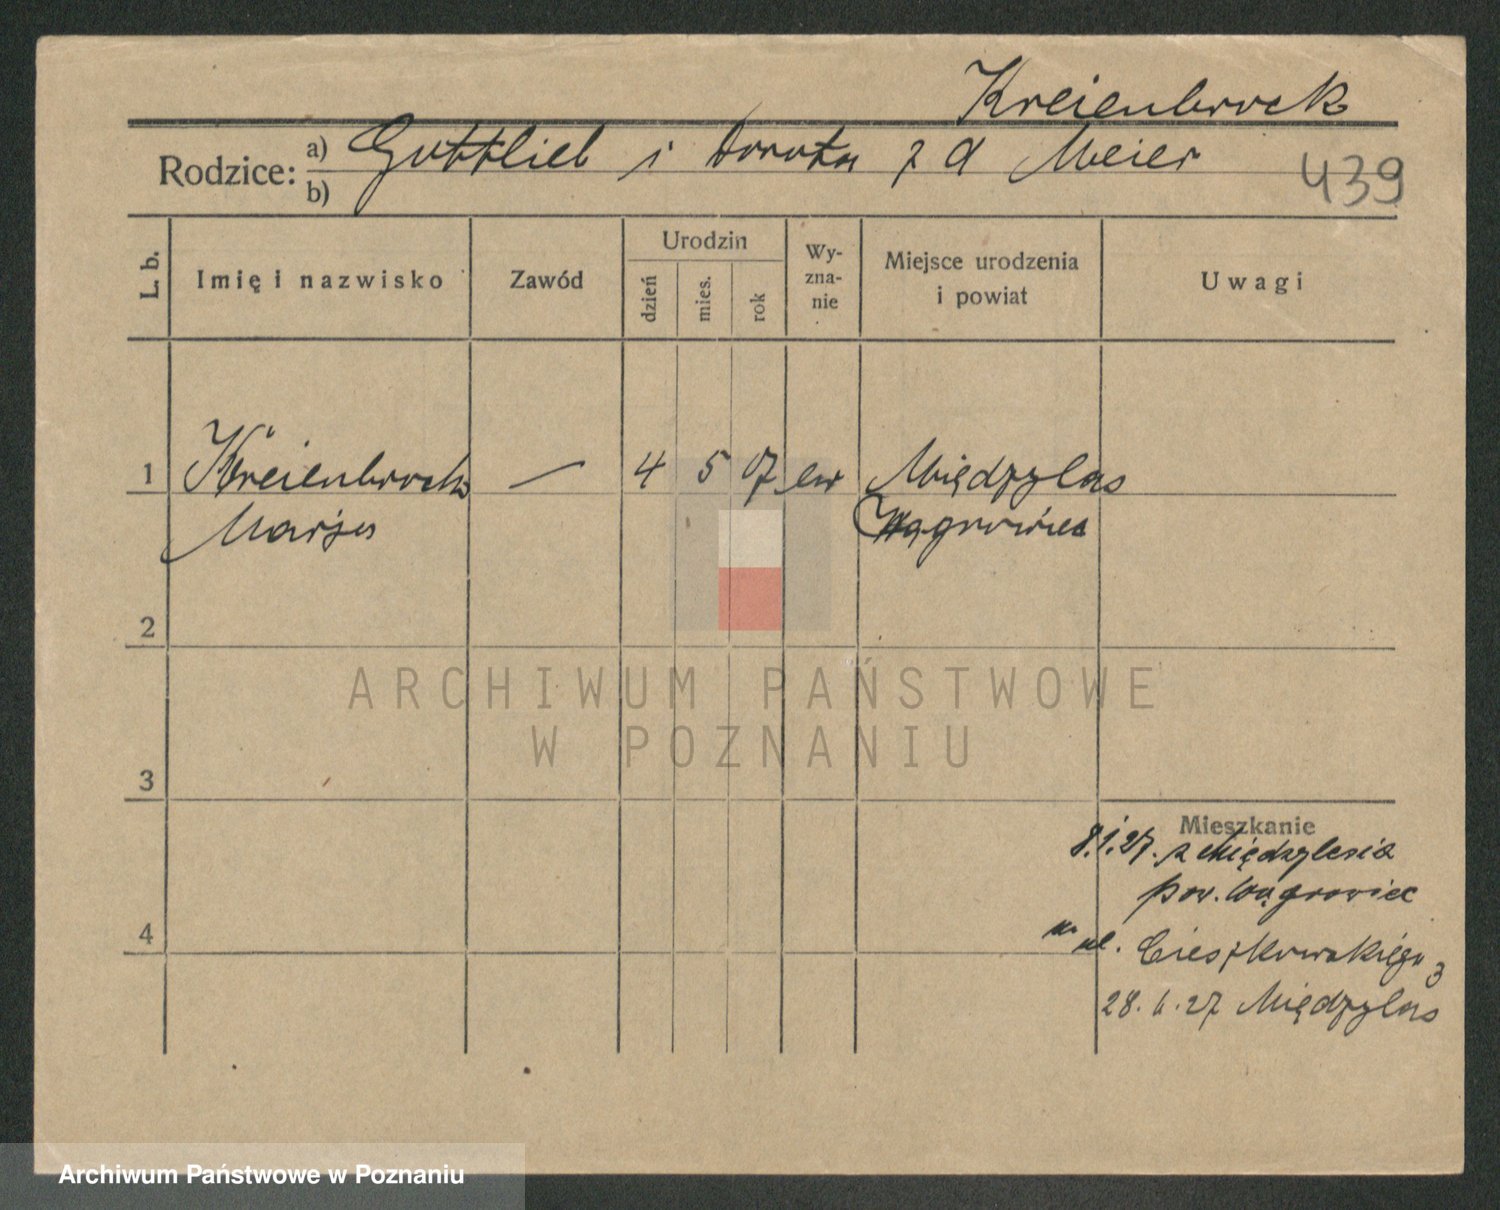 Kreienbrock
Rodzice: a) Gottlieb i Dorota z d Meier
b)
439
L. b.
Imię i nazwisko
Zawód
Urodzin
dzień
mies.
rok
Wy-
zna-
nie
Miejsce urodzenia
i powiat
Uwagi
1 Kreienbrock — 4 5 07 ew Międzylas
Marja Wągrowiec
2
ARCHIWUM PAŃSTWOWE
W POZNANIU
3
Mieszkanie
8.1.27. z Międzylesia
pow. Wągrowiec
4
ul. Cieszkowskiego 3
28.6.27 Międzylas
Archiwum Państwowe w Poznaniu